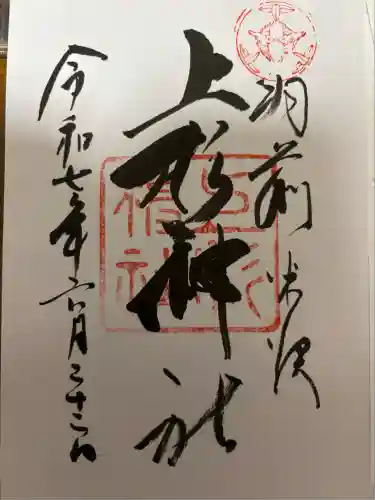 羽前米沢
上杉神社
令和七年六月二十二日